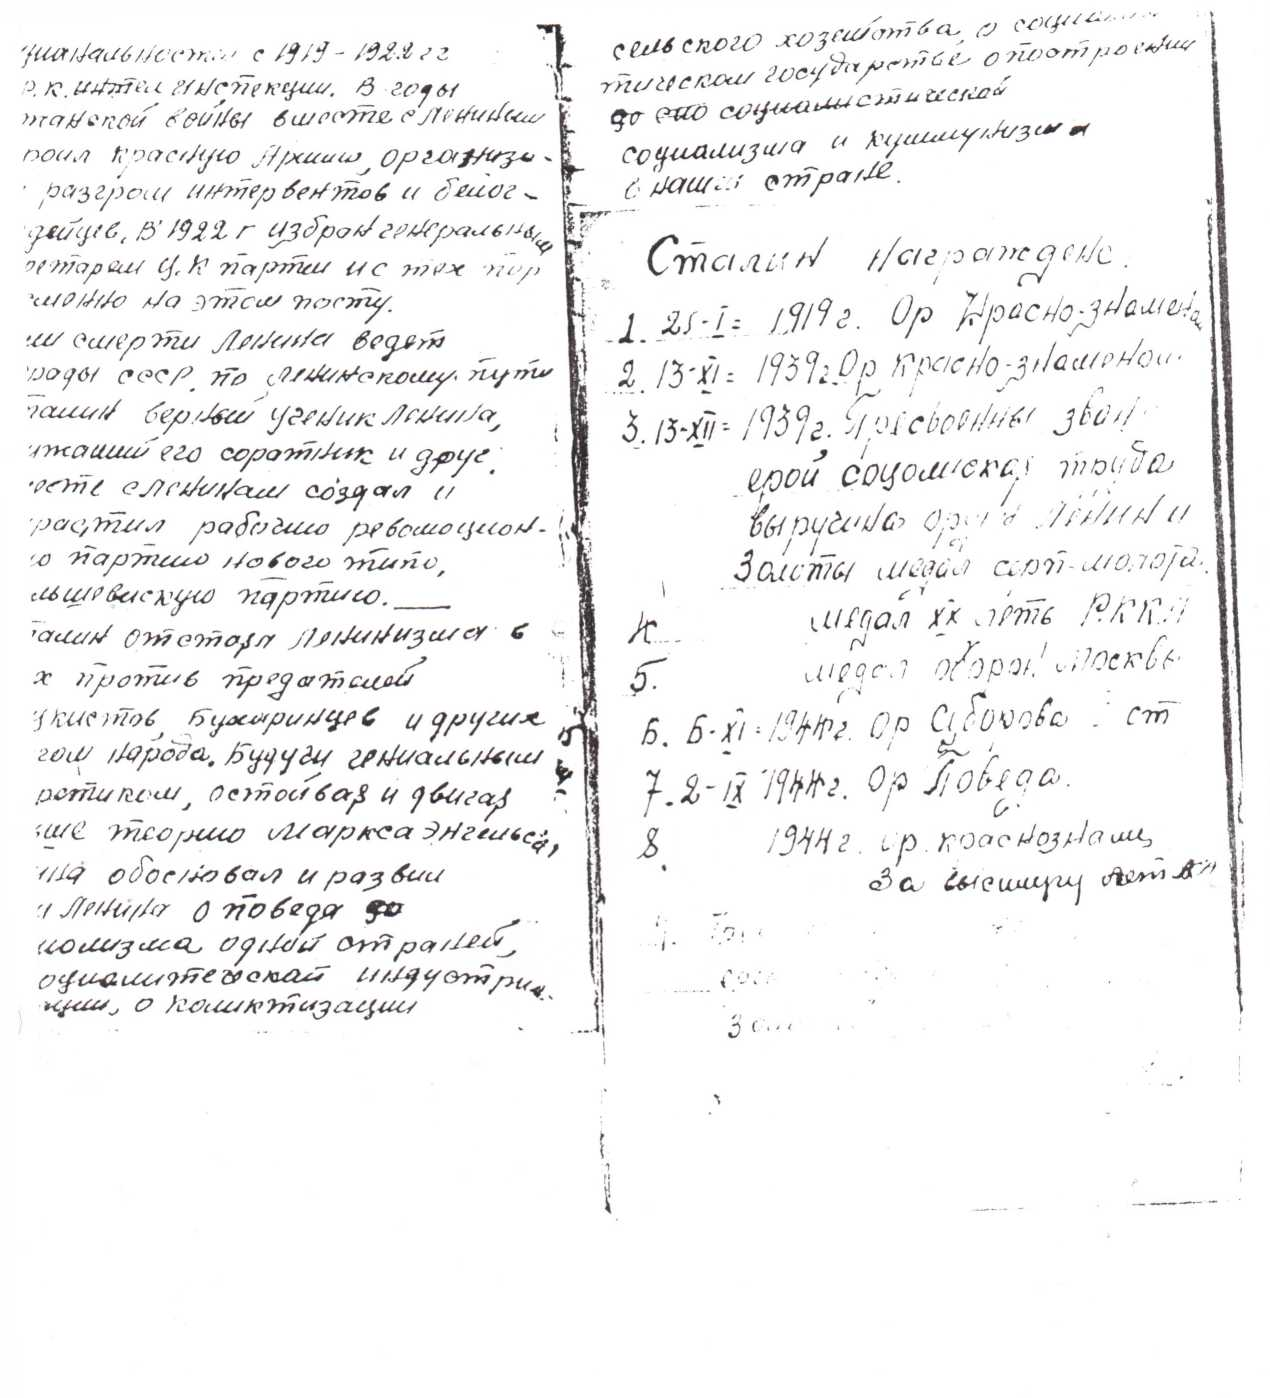 циональностям с 1919-1922 гг
Р.К. интел инспекции. В годы
жданской войны вместе с Лениным
роил красную Армию, организо-
разгром интервентов и белог-
дейцев. В 1922 г избран генеральным
ретарем Ц.К партии и с тех пор
менно на этом посту.
ми смерти Ленина ведет
роды СССР, по Ленинскому пути
талин верный ученик Ленина,
ижаший его соратник и друг.
месте с Ленинам создал и
растил рабочию революцион-
ю партию нового типо,
льшевискую партию.
талин отстояя Ленинизма в
х против предателей
цкистов, Бухаринцев и других
гом народа. Будучи гениальным
ретиком, остойвая и двигая
ше теорию Маркса Энгельса,
ина обосновал и развил
и Ленина о победа до
иолизма одной страней,
оциалитеской индустриа-
ции, о коликтизации
сельского хозейства, о социалис
тическом государстве о построении
до спо социалистической
социализма и куммунизма
в нашей стране.
Сталин награждене.
1. 25-I= 1919 г. Ор Красно-знамена
2. 13-XI= 1939 г. Ор красно-знаменом
3. 13-XII= 1939 г. Пресвоенны зван
ерой соцолиская труба
выручина ор Ленин и
Золоты медал серп-молота.
4 медал XX леть Р.К.К.А
5. медал оборон Москвы
6. 6-XI=1944 г. Ор Суборова ст
7. 2-IX 1944 г. Ор Победа.
8. 1944 г. ор. краснознамц
За высшугу лет